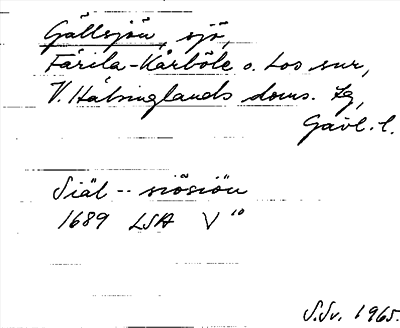 Gällsjön, sjö,
Färila-Kårböle o. Los snr,
V. Hälsinglands doms. tg,
Gävl. l.
Siäl -- siösiön
1689 LSA V¹⁰
S.Sv. 1965.